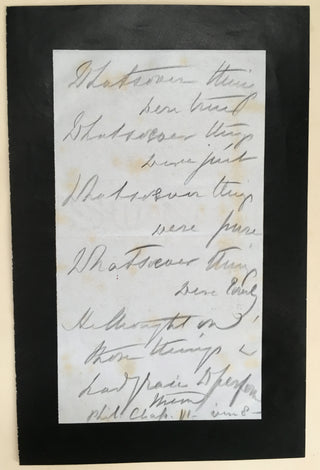 Whatsoever thing
were true
Whatsoever thing
were just
Whatsoever thing
were pure
Whatsoever thing
were lovely
He thought on
those things &
had grace to perform
them
Phil. Chap. ver 8 -